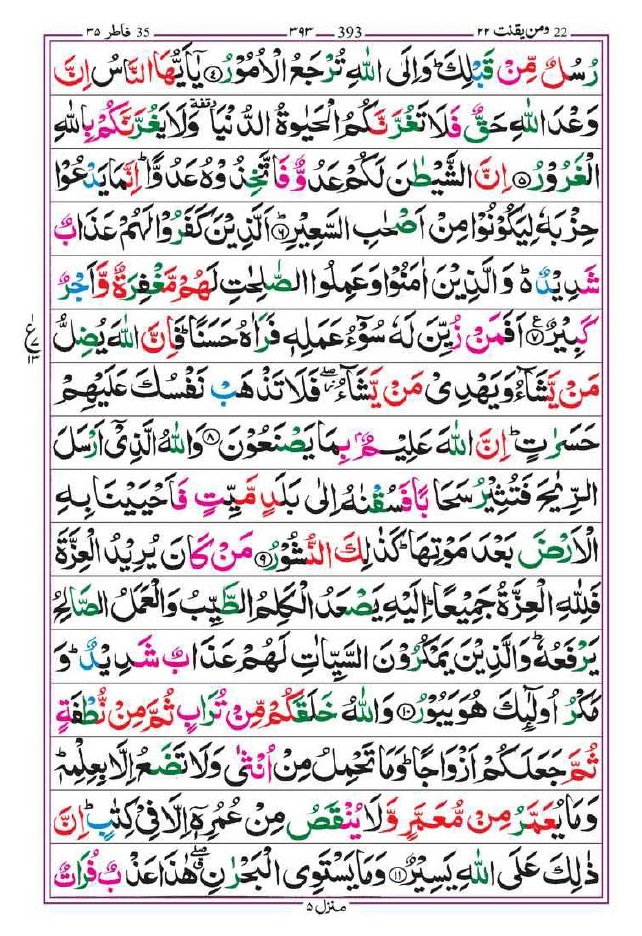 22 ومن یقنت ۲۲ 393 ۳۹۳ 35 فاطر ۳۵
رُسُلٌ مِّنۡ قَبۡلِكَ ؕ وَاِلَى اللّٰهِ تُرۡجَعُ الۡاُمُوۡرُ ﴿۴﴾ يٰۤاَيُّهَا النَّاسُ اِنَّ
وَعۡدَ اللّٰهِ حَقٌّ فَلَا تَغُرَّنَّكُمُ الۡحَيٰوةُ الدُّنۡيَا ٙ وَلَا يَغُرَّنَّكُمۡ بِاللّٰهِ
الۡغَرُوۡرُ ﴿۵﴾ اِنَّ الشَّيۡطٰنَ لَـكُمۡ عَدُوٌّ فَاتَّخِذُوۡهُ عَدُوًّا ؕ اِنَّمَا يَدۡعُوۡا
حِزۡبَهٗ لِيَكُوۡنُوۡا مِنۡ اَصۡحٰبِ السَّعِيۡرِ ؕ ﴿۶﴾ اَلَّذِيۡنَ كَفَرُوۡا لَهُمۡ عَذَابٌ
شَدِيۡدٌ ؕ وَالَّذِيۡنَ اٰمَنُوۡا وَعَمِلُوا الصّٰلِحٰتِ لَهُمۡ مَّغۡفِرَةٌ وَّاَجۡرٌ
كَبِيۡرٌ ﴿۷﴾ اَفَمَنۡ زُيِّنَ لَهٗ سُوۡٓءُ عَمَلِهٖ فَرَاٰهُ حَسَنًا ؕ فَاِنَّ اللّٰهَ يُضِلُّ
ع ۷ ۱۳
مَنۡ يَّشَآءُ وَيَهۡدِىۡ مَنۡ يَّشَآءُ ۖ فَلَا تَذۡهَبۡ نَفۡسُكَ عَلَيۡهِمۡ
حَسَرٰتٍ ؕ اِنَّ اللّٰهَ عَلِيۡمٌۢ بِمَا يَصۡنَعُوۡنَ ﴿۸﴾ وَاللّٰهُ الَّذِىۡۤ اَرۡسَلَ
الرِّيٰحَ فَتُثِيۡرُ سَحَابًا فَسُقۡنٰهُ اِلٰى بَلَدٍ مَّيِّتٍ فَاَحۡيَيۡنَا بِهِ
الۡاَرۡضَ بَعۡدَ مَوۡتِهَا ؕ كَذٰلِكَ النُّشُوۡرُ ﴿۹﴾ مَنۡ كَانَ يُرِيۡدُ الۡعِزَّةَ
فَلِلّٰهِ الۡعِزَّةُ جَمِيۡعًا ؕ اِلَيۡهِ يَصۡعَدُ الۡـكَلِمُ الطَّيِّبُ وَالۡعَمَلُ الصَّالِحُ
يَرۡفَعُهٗ ؕ وَالَّذِيۡنَ يَمۡكُرُوۡنَ السَّيِّاٰتِ لَهُمۡ عَذَابٌ شَدِيۡدٌ ؕ وَ
مَكۡرُ اُولٰٓٮِٕكَ هُوَ يَبُوۡرُ ﴿۱۰﴾ وَاللّٰهُ خَلَقَكُمۡ مِّنۡ تُرَابٍ ثُمَّ مِنۡ نُّطۡفَةٍ
ثُمَّ جَعَلَـكُمۡ اَزۡوَاجًا ؕ وَمَا تَحۡمِلُ مِنۡ اُنۡثٰى وَلَا تَضَعُ اِلَّا بِعِلۡمِهٖ ؕ
وَمَا يُعَمَّرُ مِنۡ مُّعَمَّرٍ وَّلَا يُنۡقَصُ مِنۡ عُمُرِهٖۤ اِلَّا فِىۡ كِتٰبٍ ؕ اِنَّ
ذٰلِكَ عَلَى اللّٰهِ يَسِيۡرٌ ﴿۱۱﴾ وَمَا يَسۡتَوِى الۡبَحۡرٰنِ ۖ هٰذَا عَذۡبٌ فُرَاتٌ
منزل ۵